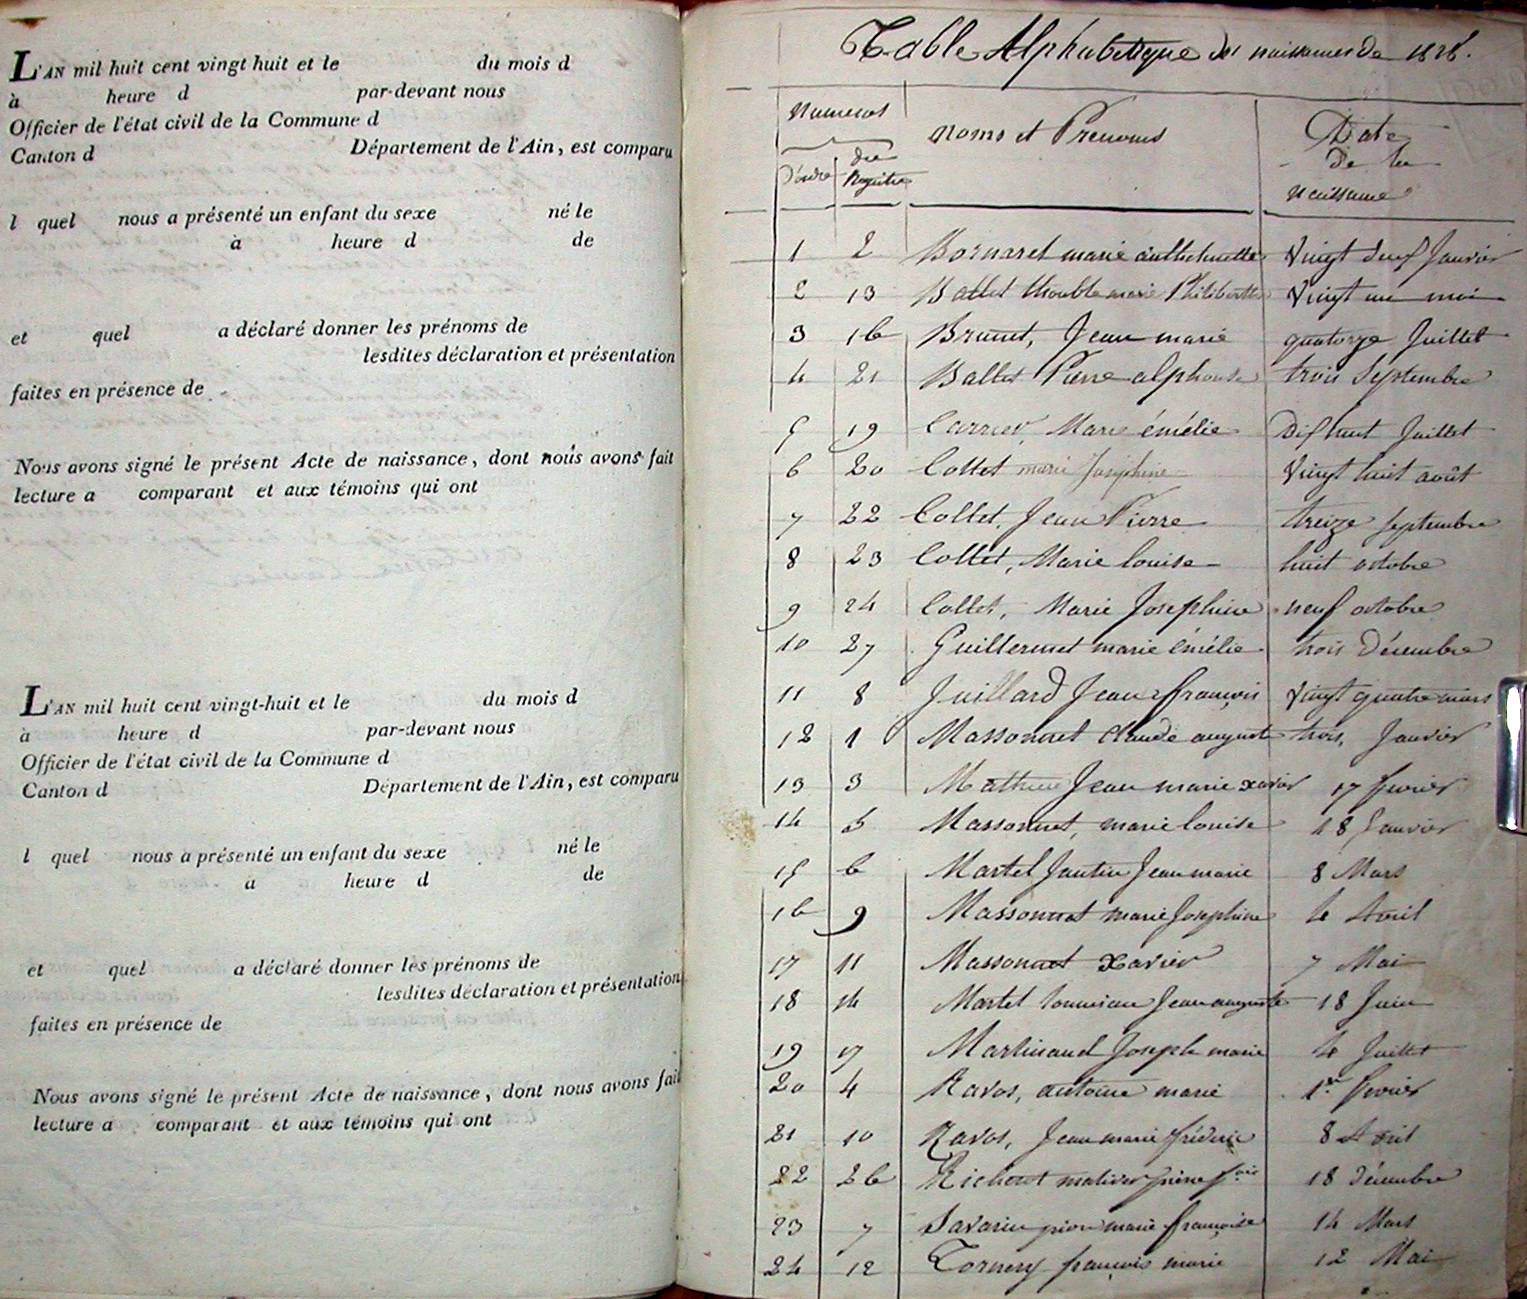 L'AN mil huit cent vingt huit et le du mois d
à heure d par-devant nous
Officier de l'état civil de la Commune d
Canton d Département de l'Ain, est comparu
l quel nous a présenté un enfant du sexe né le
à heure d de
et quel a déclaré donner les prénoms de
lesdites déclaration et présentation
faites en présence de
Nous avons signé le présent Acte de naissance, dont nous avons fait
lecture a comparant et aux témoins qui ont
L'AN mil huit cent vingt-huit et le du mois d
à heure d par-devant nous
Officier de l'état civil de la Commune d
Canton d Département de l'Ain, est comparu
l quel nous a présenté un enfant du sexe né le
a heure d de
et quel a déclaré donner les prénoms de
lesdites déclaration et présentation
faites en présence de
Nous avons signé le présent Acte de naissance, dont nous avons fait
lecture a comparant et aux témoins qui ont
Table Alphabetique des naissances de 1828.
Numeros
D'ordre
du Registre
Noms et Prenoms
Date de la Naissance
1 2 Bornaret marie anthelmette Vingt deux Janvier
2 13 Ballet marie Philiberthe Vingt un mai
3 16 Brunet, Jean marie quatorze Juillet
4 21 Ballet Pierre alphonse trois Septembre
5 19 Carrier, Marie émélie Dix huit Juillet
6 20 Collet marie Josephine Vingt huit août
7 22 Collet, Jean Pierre treize septembre
8 23 Collet, Marie louise huit octobre
9 24 Collet, Marie Josephine neuf octobre
10 27 Guillermet marie émélie trois Décembre
11 8 Juillard Jean françois Vingt quatre mars
12 1 Massonnet Claude auguste trois, Janvier
13 3 Mathieu Jean marie xavier 17 fevrier
14 5 Massonnet, marie louise 18 Janvier
15 6 Martel Jean marie 8 Mars
16 9 Massonnet marie Josephine 4 Avril
17 11 Massonnet Xavier 7 Mai
18 14 Martel Jean auguste 18 Juin
19 17 Martinaud Joseph marie 4 Juillet
20 4 Ravos, antoine marie 1er fevrier
21 10 Ravos, Jean marie fréderic 8 Avril
22 26 18 Décembre
23 7 Savarin marie françoise 14 Mars
24 12 Tornery françois marie 12 Mai